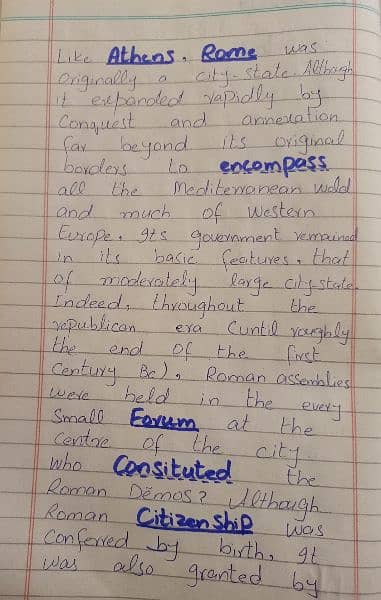 Like Athens, Rome was
originally a city-state. Although
it expanded rapidly by
Conquest and annexation
far beyond its original
borders to encompass
all the Mediterranean world
and much of Western
Europe, Its government remained
in its basic features, that
of moderately large city-state.
Indeed, throughout the
republican era (until roughly
the end of the first
Century Bc), Roman assemblies
were held in the every
Small Forum at the
Centre of the city.
Who Consituted the
Roman Dëmos? Although
Roman Citizen Ship was
Conferred by birth, It
was also granted by